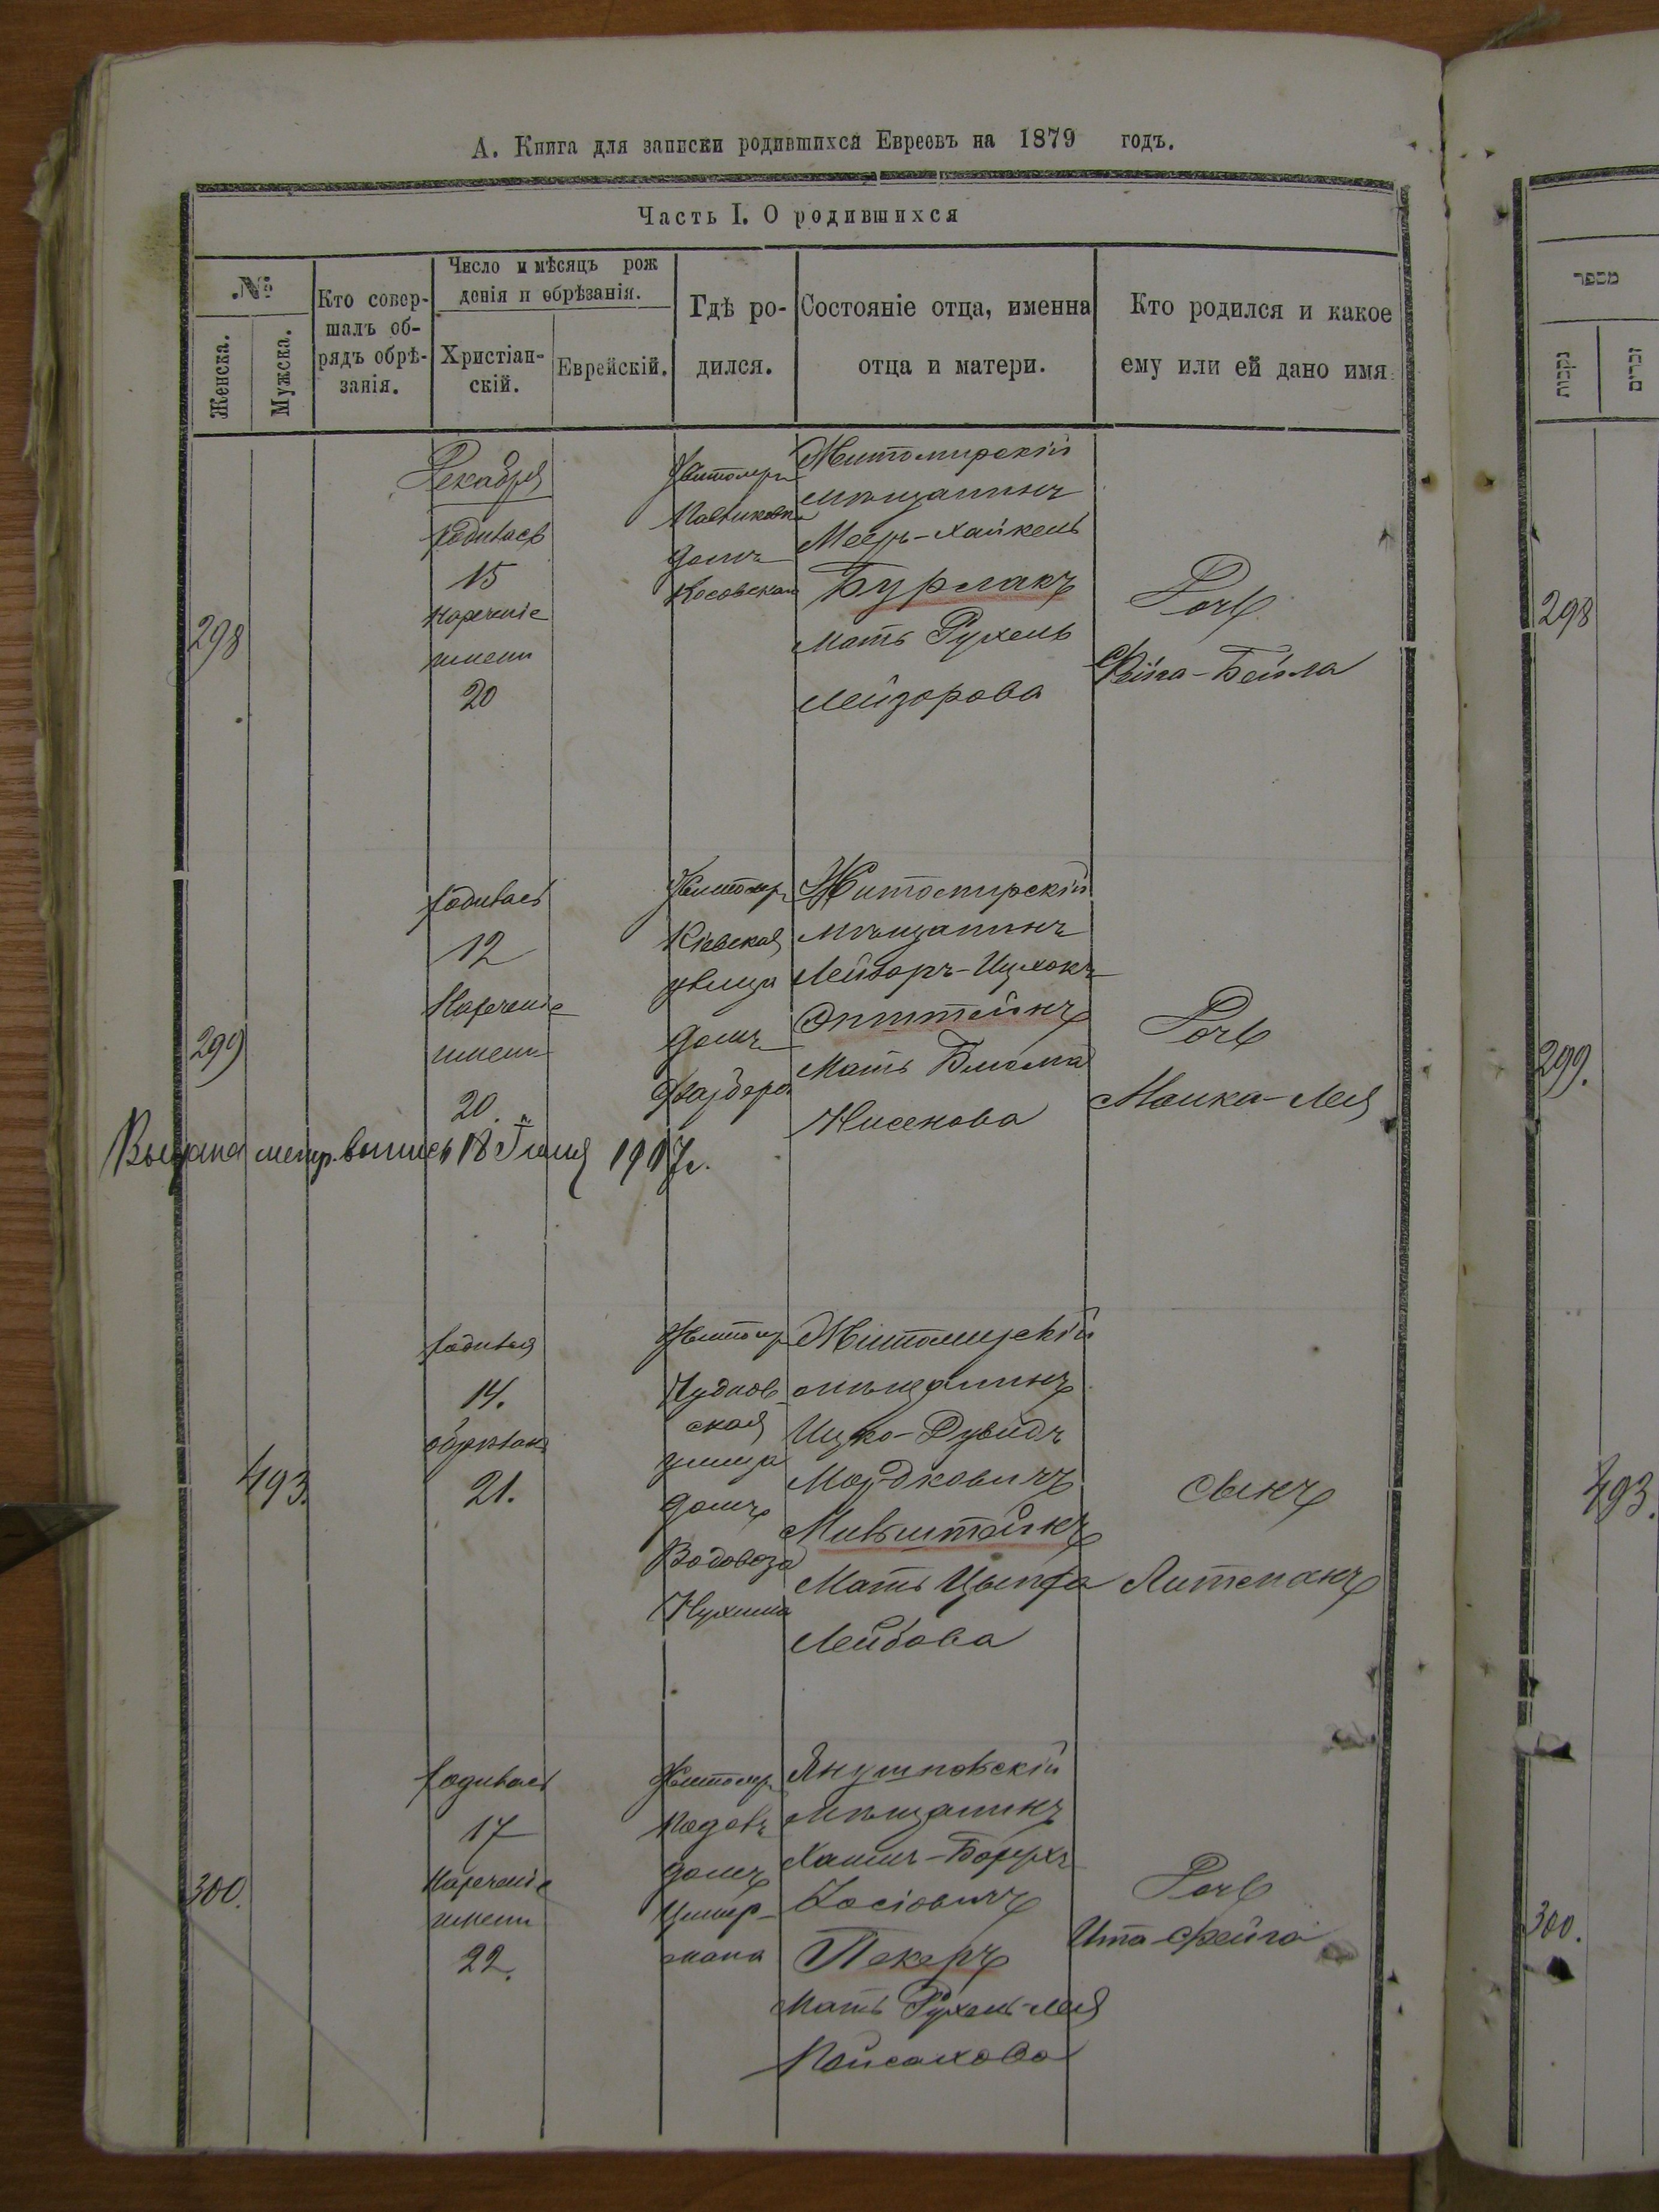 А. Книга для записки родившихся Евреевъ на 1879 годъ.
Часть I. О родившихся
№
Женска.
Мужска.
Кто совер-
шалъ об-
рядъ обрѣ-
занія.
Число и мѣсяцъ рож
денія и обрѣзанія.
Христіан-
скій.
Еврейскій.
Гдѣ ро-
дился.
Состояніе отца, именна
отца и матери.
Кто родился и какое
ему или ей дано имя.
מספר
נקבות
זכרים
298
Декабря
родилась
15
Нареченіе
имени
20
Житомиръ
домъ
Житомирскій
мѣщанинъ
Меер-Хайкель
Бурлакъ
Мать Рухель
Лейзорова
Дочь
Фейга-Бейла
298
299
родилась
12
Нареченіе
имени
20.
Житомир
Кіевская
улица
домъ
Житомирскій
мѣщанинъ
Лейзоръ-Ицхокъ
Эпштейнъ
Мать Блюма
Нисенова
Дочь
Малка-Лея
299.
Выдана метр. выпись 18 Іюня 1907 г.
493.
родился
14.
обрѣзанъ
21.
Житомир
Чуднов-
ская
улица
домъ
Водовоза
Нухима
Житомирскій
мѣщанинъ
Ицко-Дувидъ
Мордковичъ
Мильштейнъ
Мать Ципра
Лейбова
сынъ
493.
300.
родилась
17
Нареченіе
имени
22.
Житомир
домъ
Цимер-
мана
Янушповскій
мѣщанинъ
Хаимъ-Борухъ
Іосіовичъ
Пекеръ
Мать Рухель-Лея
Пейсахова
Дочь
Ита-Фейга
300.